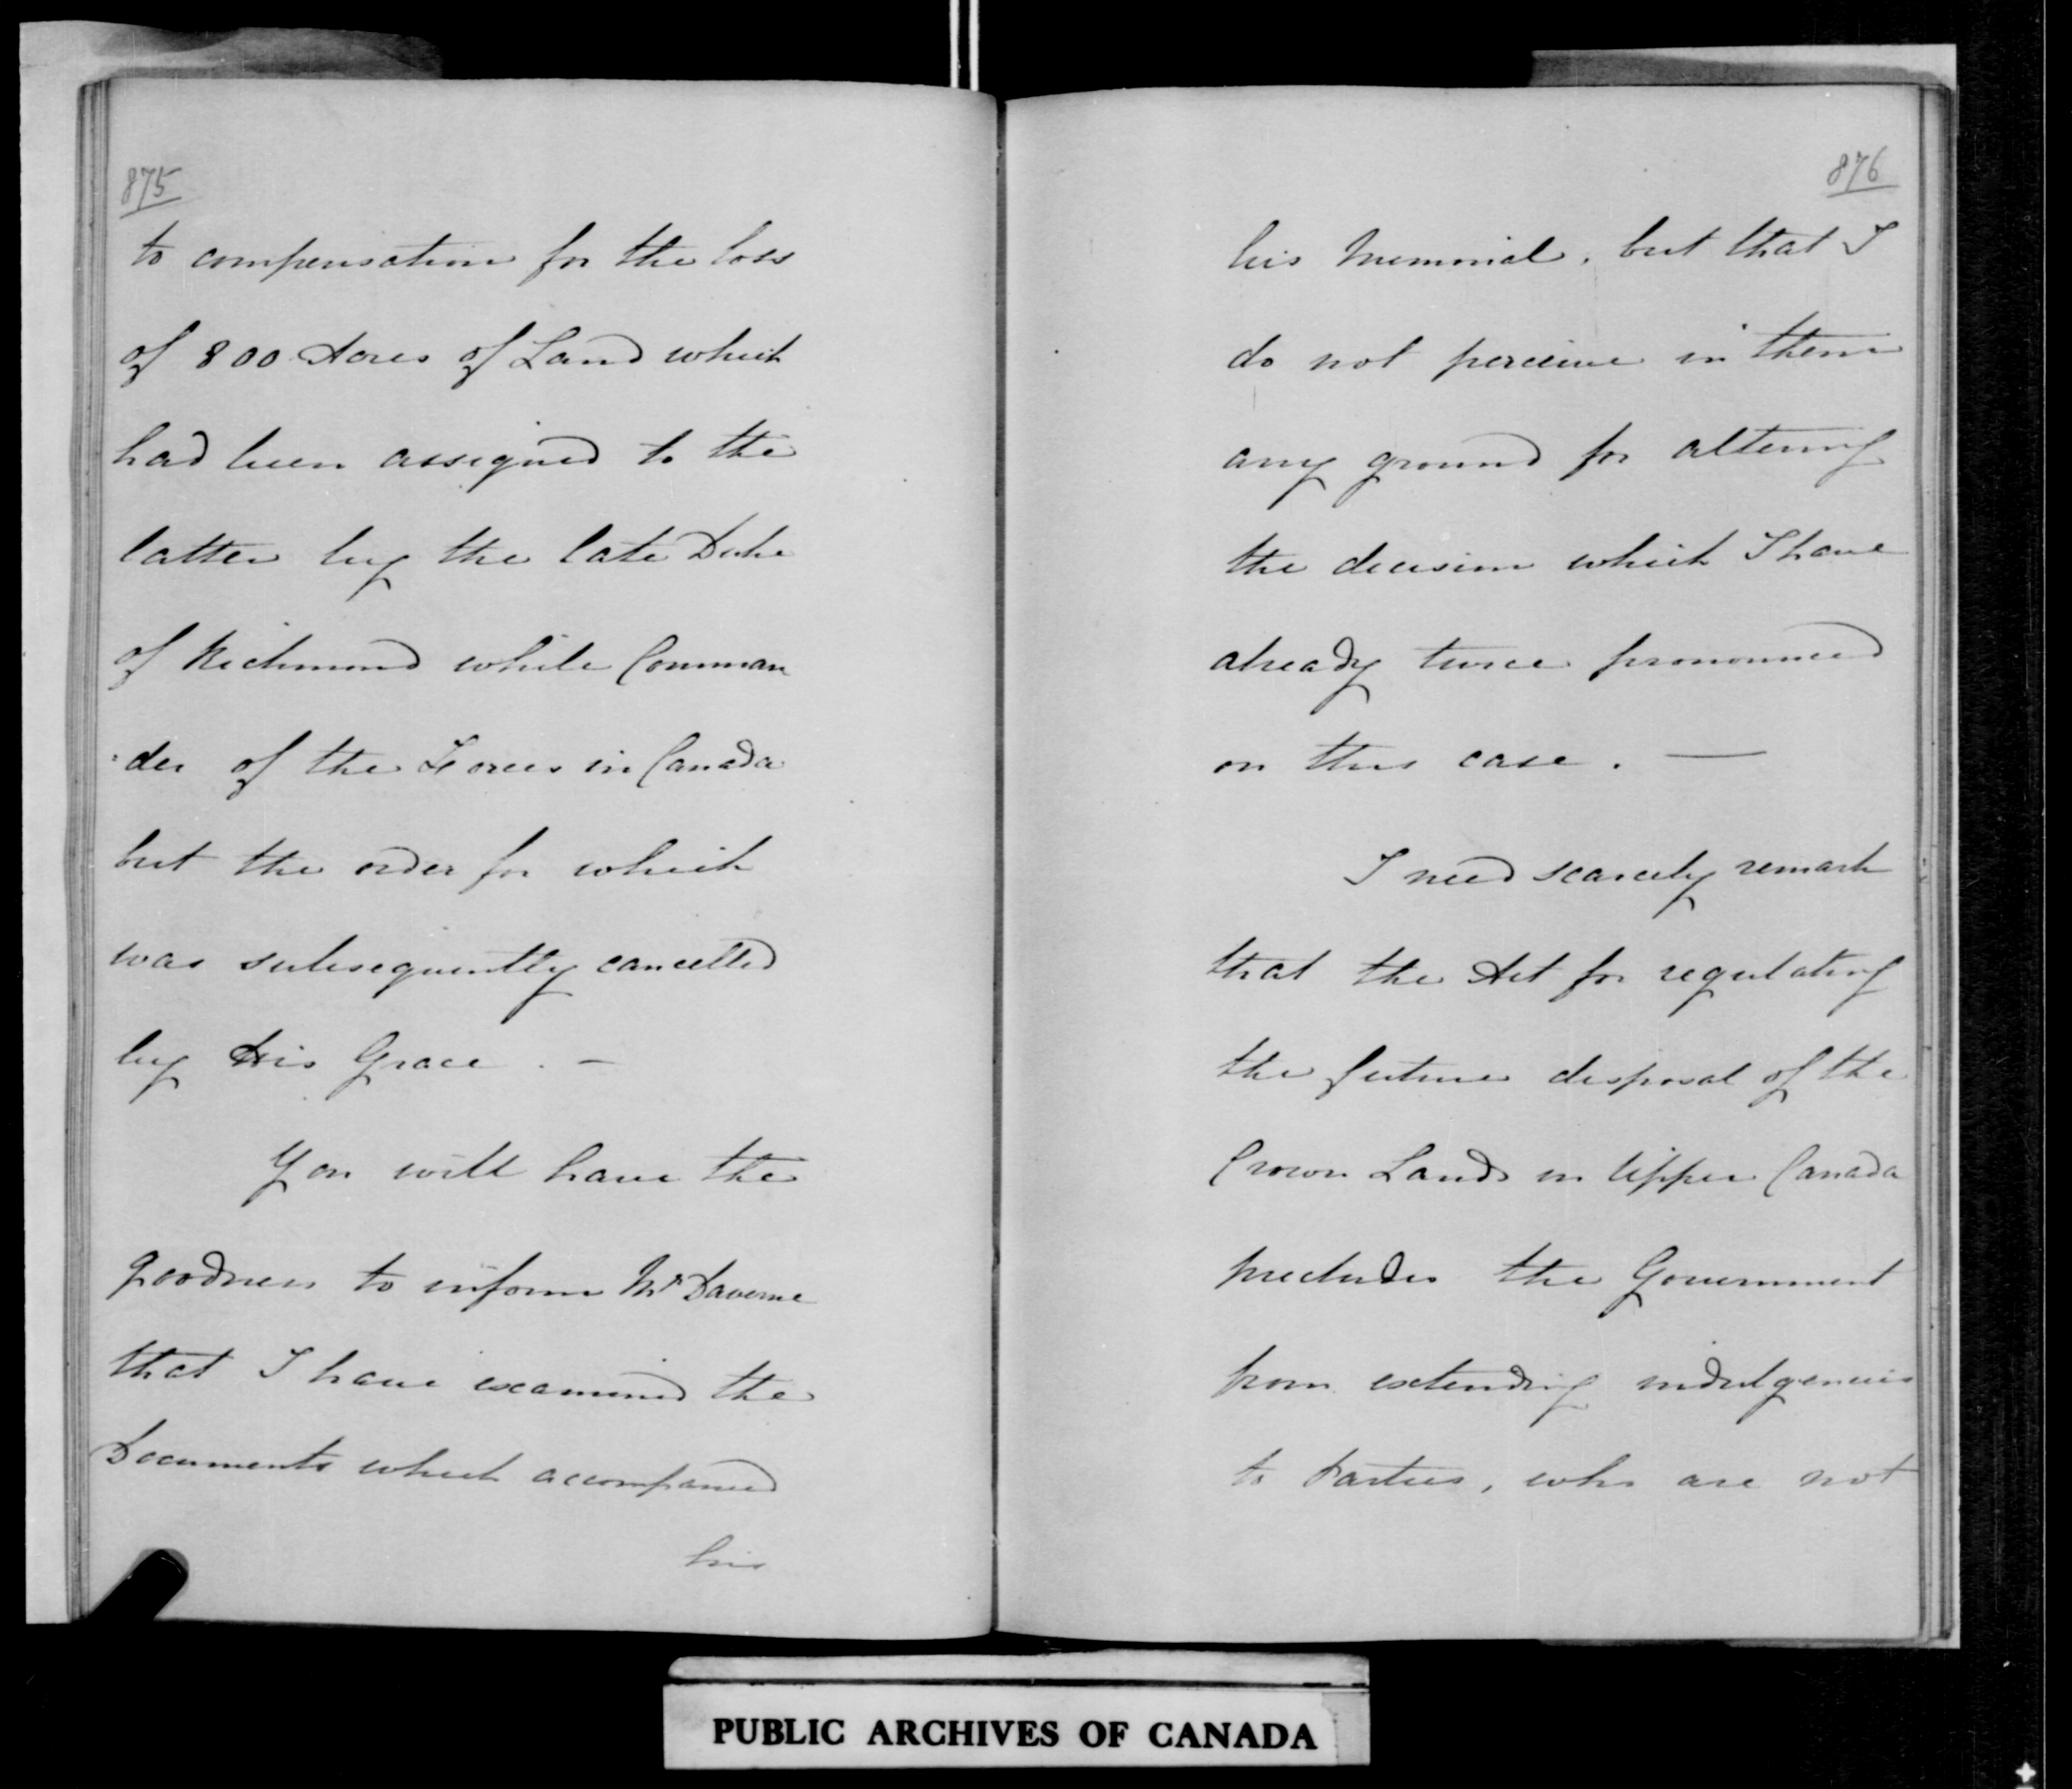 875
to compensation for the loss
of 800 Acres of Land which
had been assigned to the
latter by the late Duke
of Richmond while Comman
-der of the Forces in Canada
but the order for which
was subsequently cancelled
by His Grace. —
You will have the
goodness to inform Mr Daverne
that I have examined the
Documents which accompanied
his
876
his Memorial, but that I
do not perceive in them
any ground for altering
the decision which I have
already twice pronounced
on this case. —
I need scarcely remark
that the Act for regulating
the future disposal of the
Crown Lands in Upper Canada
precludes the Government
from extending indulgencies
to Parties, who are not
PUBLIC ARCHIVES OF CANADA